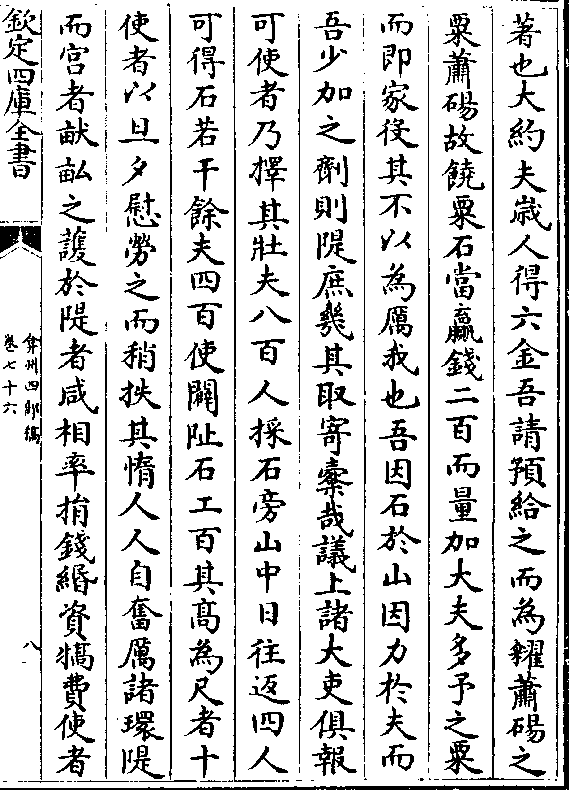 著也大約夫歲人得六金吾請預給之而為糴蕭碭之
粟蕭碭故饒粟石當贏錢二百而量加大夫多予之粟
而即家役其不以為厲我也吾因石於山因力於夫而
吾少加之劑則隄庶幾其取寄橐哉議上諸大吏俱報
可使者乃擇其壯夫八百人採石旁山中日往返四人
可得石若干餘夫四百使闢阯石工百其高為尺者十
使者以旦夕慰勞之而稍抶其惰人人自奮厲諸環隄
而宫者畝畝之護於隄者咸相率捐錢緡資犒費使者
欽定四庫全書
弇州四部稿
卷七十六
八